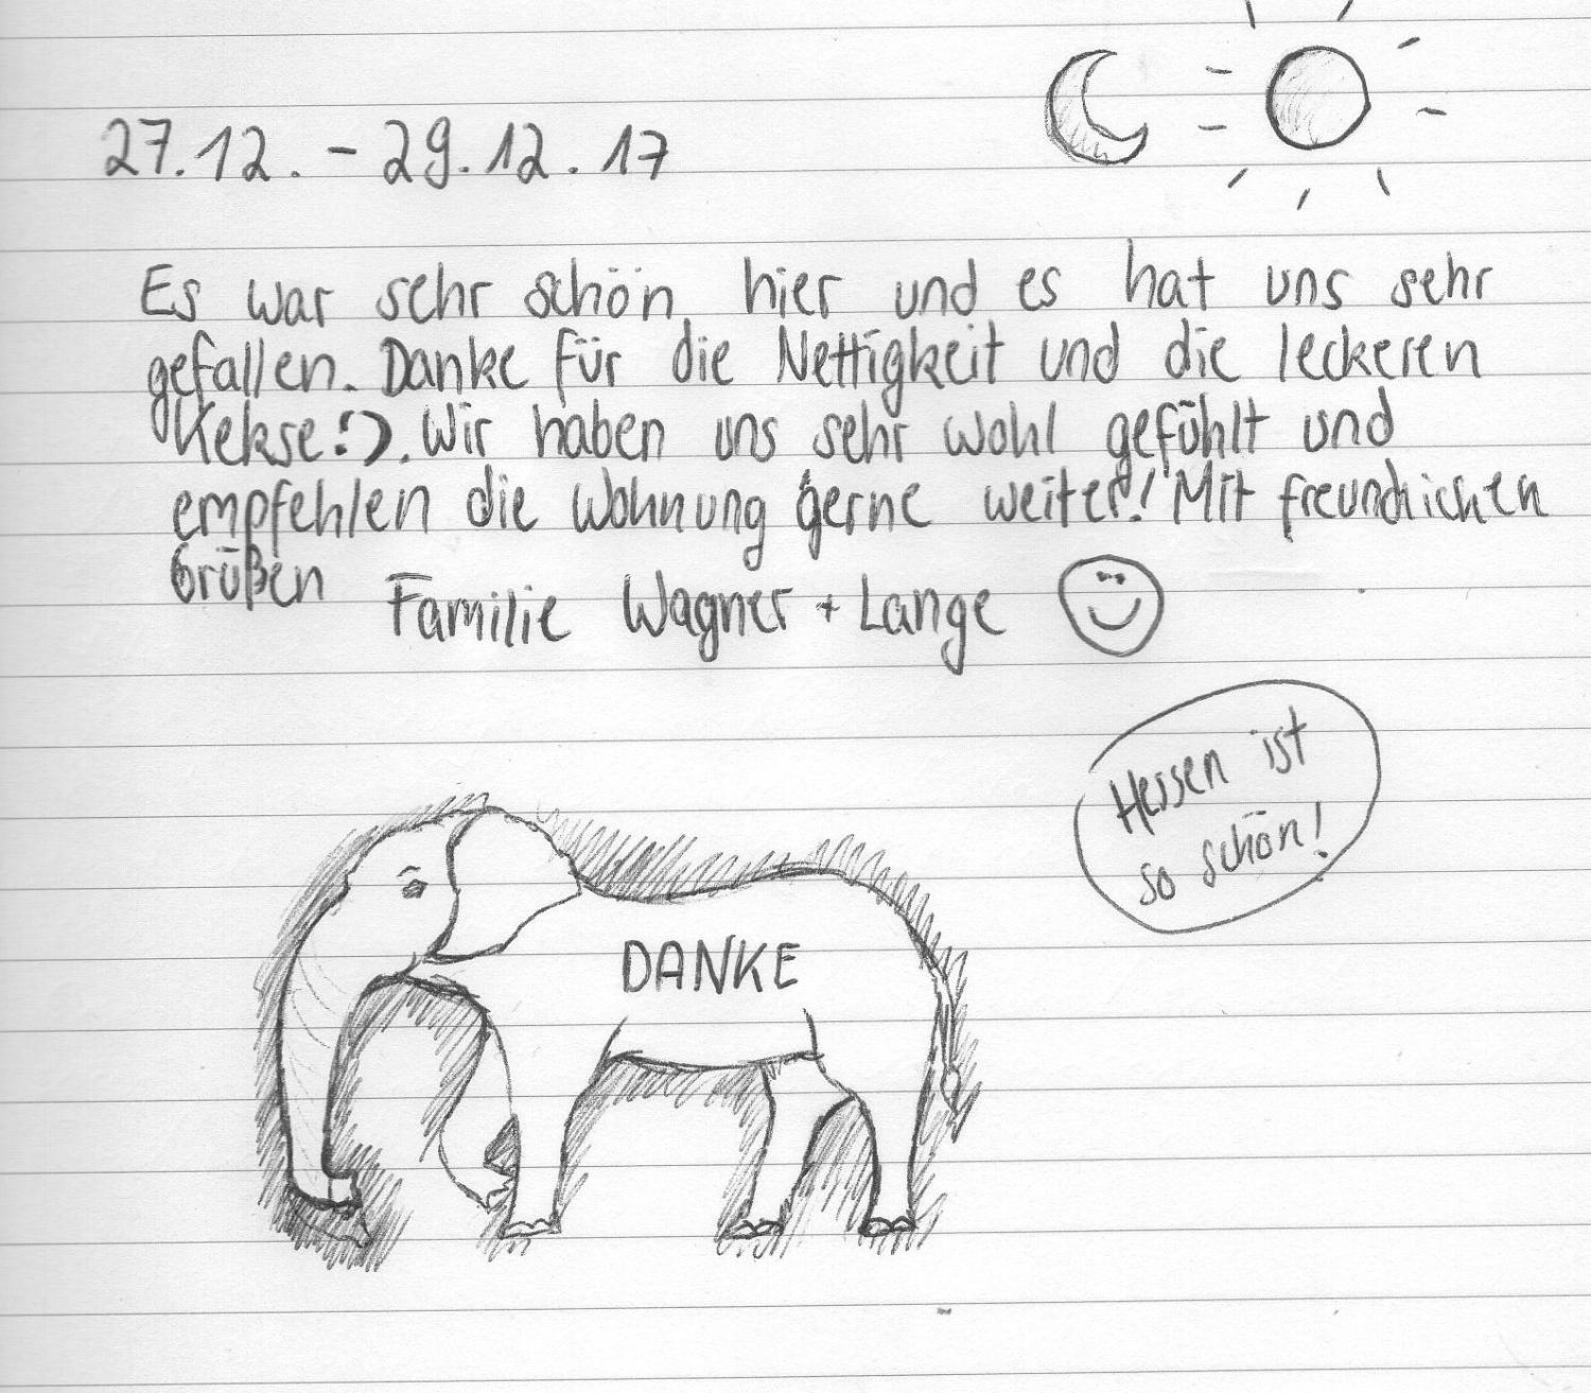 27.12. - 29.12.17
Es war sehr schön hier und es hat uns sehr
gefallen. Danke für die Nettigkeit und die leckeren
Kekse:). Wir haben uns sehr wohl gefühlt und
empfehlen die Wohnung gerne weiter! Mit freundlichen
Grüßen
Familie Wagner + Lange
Hessen ist
so schön!
DANKE